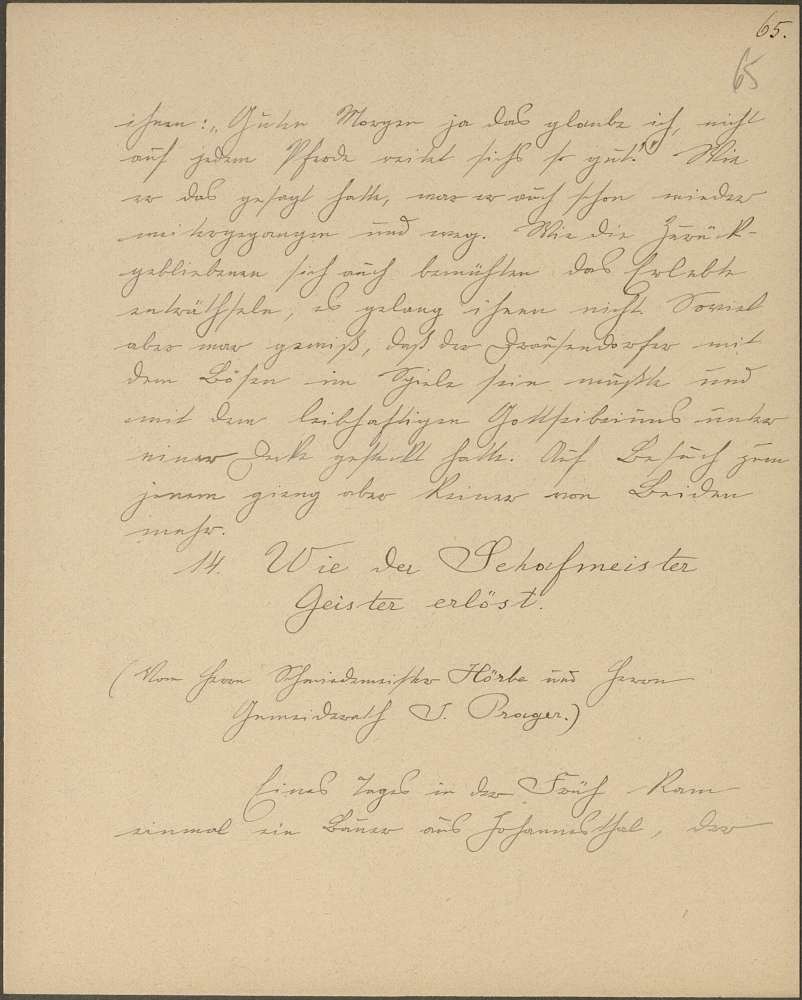 65.
65
ihnen: „Guten Morgen ja das glaube ich, nicht
auf jedem Pferde reitet sichs so gut." Wie
er das gesagt hatte, war er auch schon wieder
weitergegangen und weg. Wie die Zurück-
gebliebenen sich auch bemühten das Erlebte
enträthseln, es gelang ihnen nicht. Soviel
aber war gewiß, daß der Drausendorfer mit
dem Bösen im Spiele sein mußte und
mit dem leibhaftigen Gottseibeiuns unter
einer Decke gesteckt hatte. Auf Besuch zum
jenem gieng aber keiner von Beiden
mehr.
14. Wie der Schafmeister
Geister erlöst.
(Vom Herrn Schmiedemeister Hörbe und Herrn
Gemeinderath J. Prager.)
Eines Tages in der Früh kam
einmal ein Bauer aus Johannesthal, der